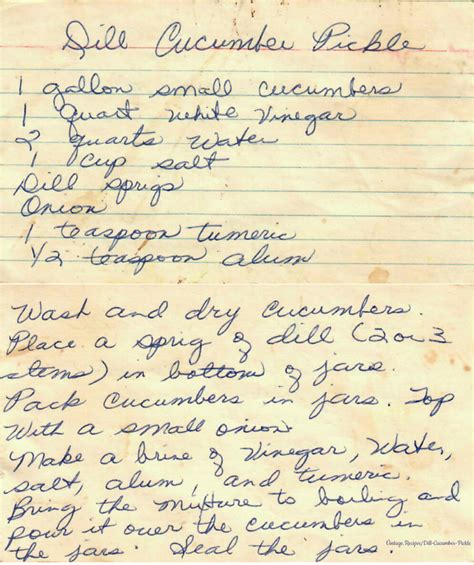 Dill Cucumber Pickle
1 gallon small cucumbers
1 quart white vinegar
2 quarts water
1 cup salt
Dill sprigs
Onion
1 teaspoon tumeric
1/2 teaspoon alum
Wash and dry cucumbers.
Place a sprig of dill (2 or 3
stems) in bottom of jars.
Pack cucumbers in jars. Top
With a small onion.
Make a brine of Vinegar, Water,
salt, alum, and tumeric.
Bring the mixture to boiling and
pour it over the cucumbers in
the jars. Seal the jars.
Vintage.Recipes/Dill-Cucumber-Pickle